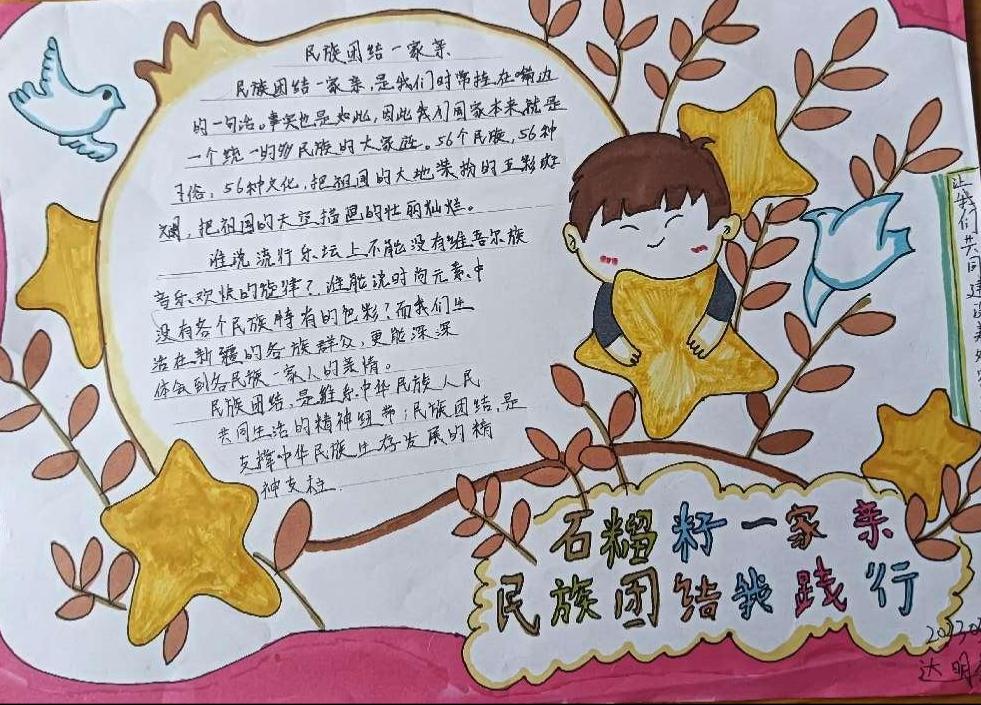 民族团结一家亲
民族团结一家亲,是我们时常挂在嘴边
的一句话。事实也是如此,因此我们国家本来就是
一个统一的多民族的大家庭。56个民族,56种
习俗,56种文化,把祖国的大地装扮的五彩斑
斓,把祖国的天空描画的壮丽灿烂。
谁说流行乐坛上不能没有维吾尔族
音乐欢快的旋律?谁能说时尚元素中
没有各个民族特有的色彩?而我们生
活在新疆的各族群众,更能深深
体会到各民族一家人的亲情。
民族团结,是维系中华民族人民
共同生活的精神纽带;民族团结,是
支撑中华民族生存发展的精
神支柱
让我们共同建设美好家
石榴籽一家亲
民族团结我践行
达明